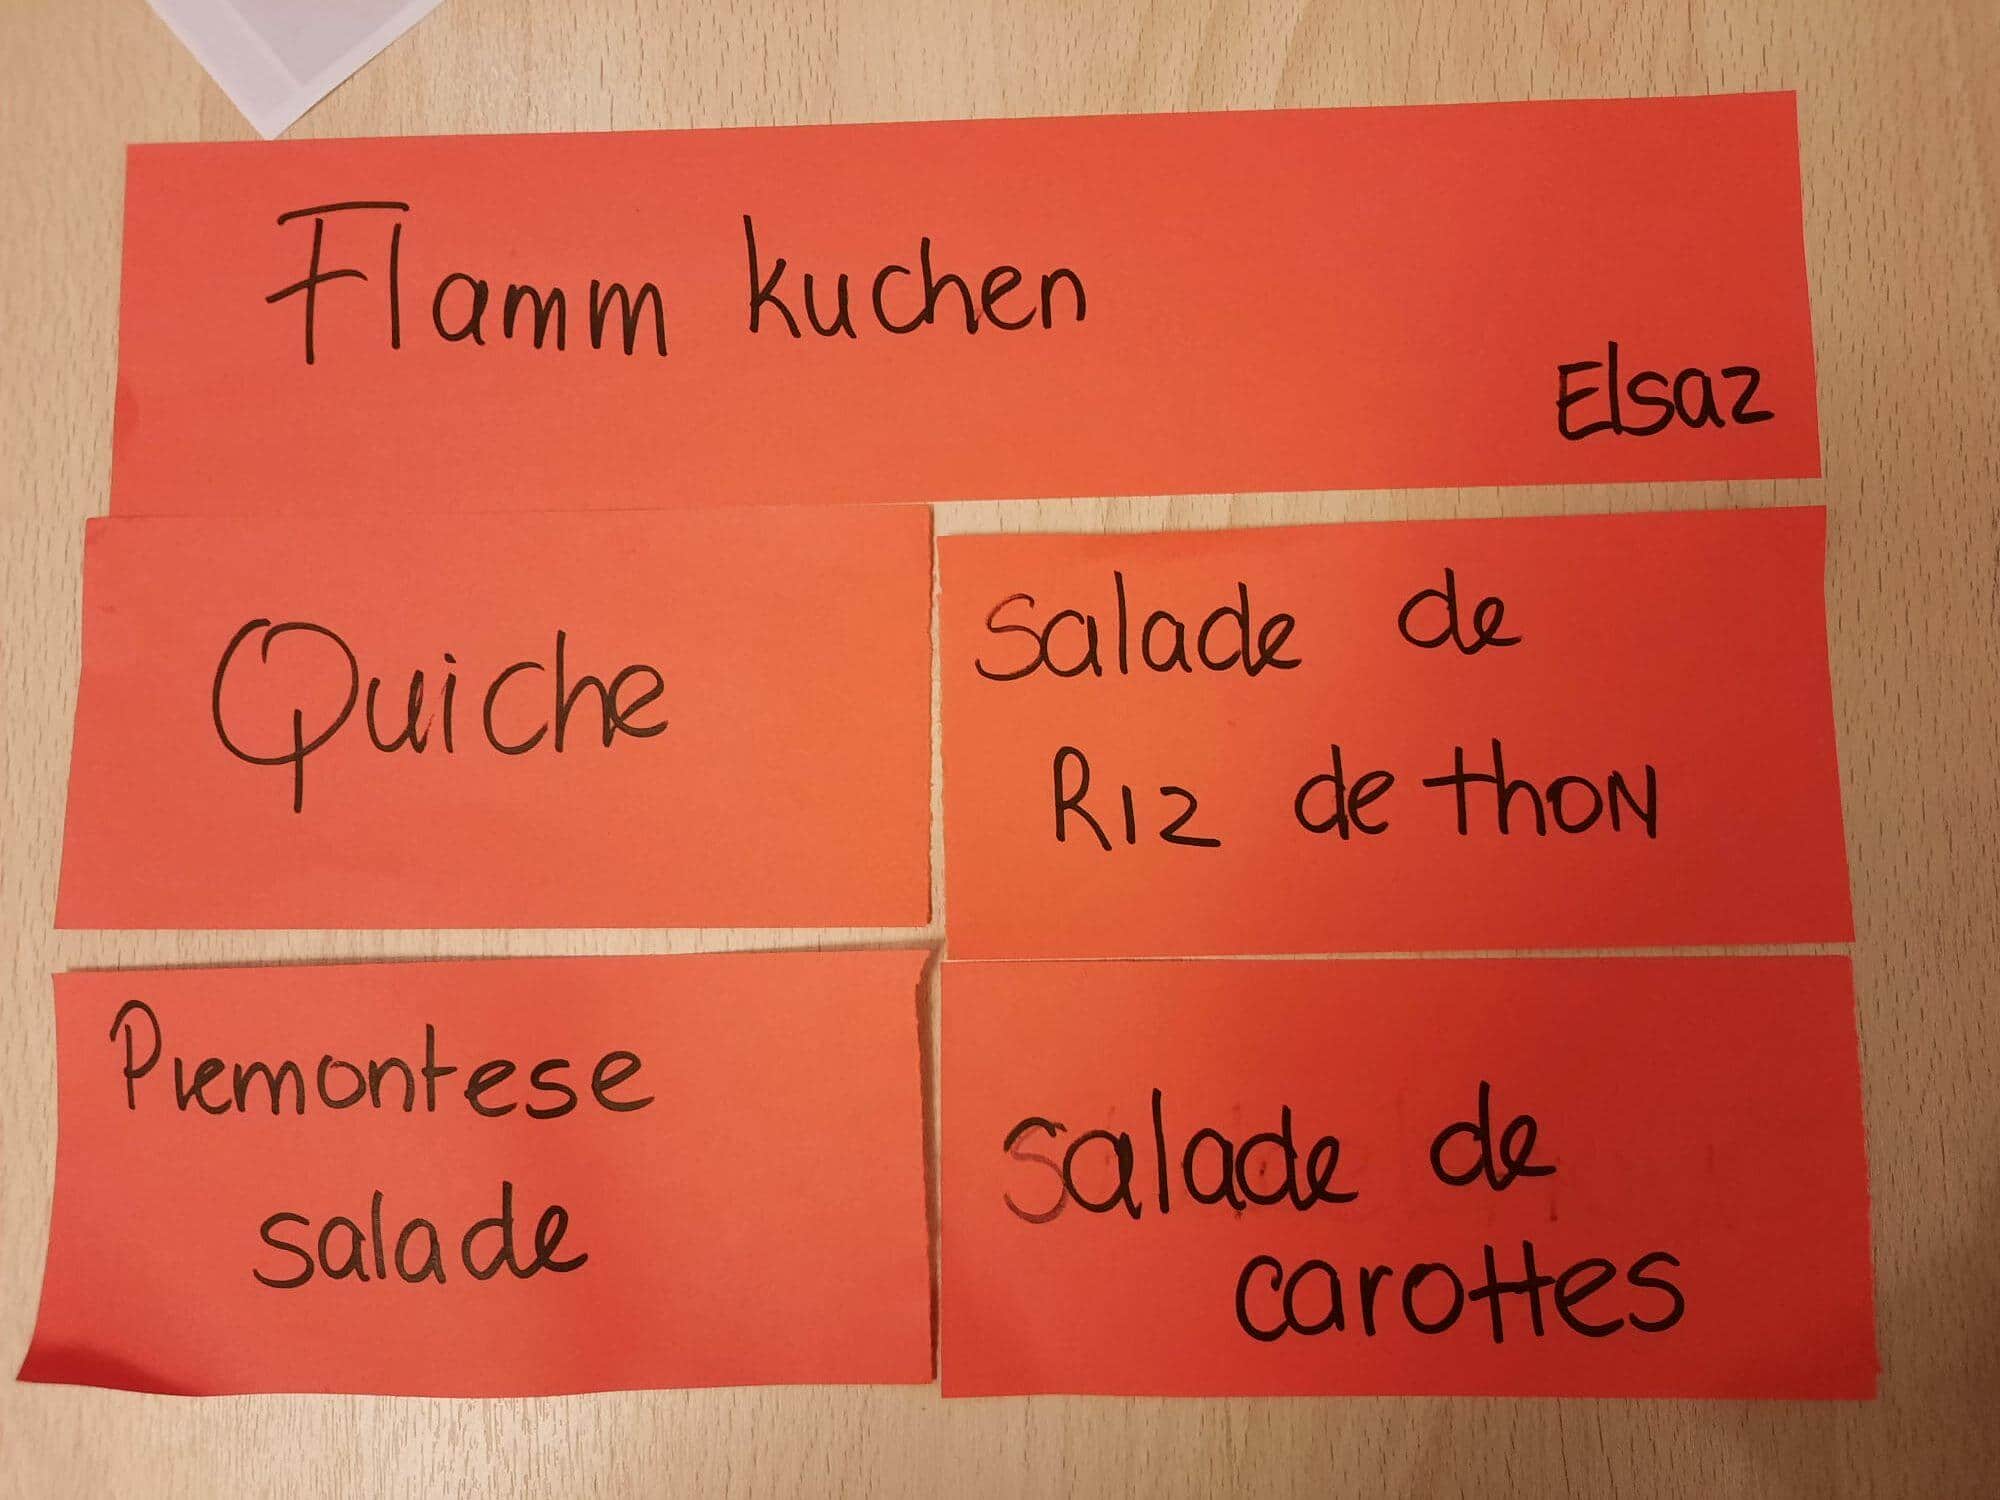 Flamm kuchen
Elsaz
Quiche
Salade de
Riz de thoN
Piemontese
salade
Salade de
carottes